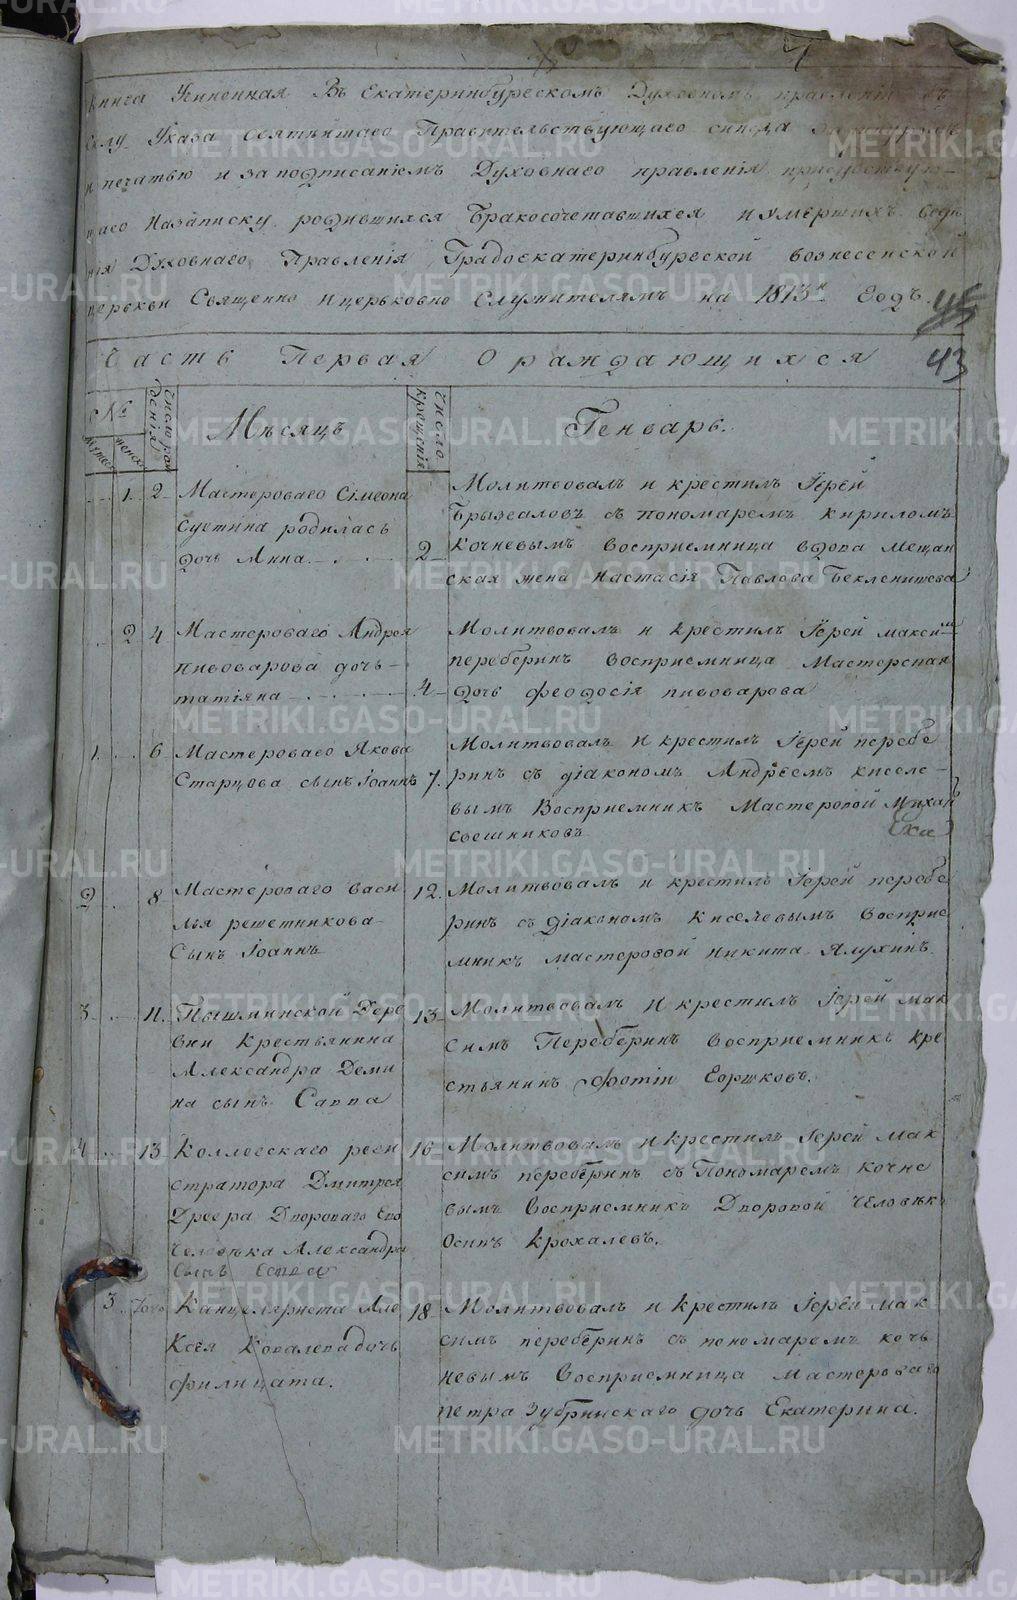 Книга Учиненная Въ Екатеринбургскомъ Духовномъ правленіи въ
Силу Указа Святѣйшаго Правительствующаго синода за шнуромъ
и печатью и за подписаніемъ Духовнаго правленія присудствую-
щаго Назаписку родившихся Бракосочетавшихся и умершихъ веде
нія Духовнаго Правленія Градоекатеринбургской вознесенской
церькви Священно и церьковно служителямъ на 1813й Годъ.
45
43
Часть Первая О раждающихся
№
мужес
женс
Число рож
денія
Мѣсяцъ
Число
крещенія
Генварь.
1. 2 Мастероваго Сімеона
Сустина родилась
дочь Анна.
2
Молитвовалъ и крестилъ Іерей
Брызгаловъ съ пономаремъ кириломъ
Кочневымъ Восприемница вдова мещан
ская жена Настасія Павлова Бекленищева
2 4 Мастероваго Андрея
пивоварова дочь
татіяна
4
Молитвовалъ и крестилъ Іерей максимъ
переберинъ восприемница Мастерская
дочь феодосія пивоварова
1. 6 Мастероваго Якова
Старцова сынъ Іоаннъ
7.
Молитвовалъ и крестилъ Іерей перебе
ринъ съ діакономъ Андреемъ киселе-
вымъ Восприемникъ Мастеровой михай
ха
свешниковъ
2 8 Мастероваго васи
лья решетникова
Сынъ Іоаннъ
12.
Молитвовалъ и крестилъ Іерей перебе
ринъ съ діакономъ Киселевымъ восприе
мникъ мастеровой никита Ялухинъ.
3 11. Пышминской Дере
вни крестьянина
Александра Деми
на сынъ Савва
13
Молитвовалъ и крестилъ Іерей мак
симъ Переберинъ восприемникъ кре
стьянинъ Фотіи Горшковъ.
4 13 Коллегскаго реги
стратора Дмитрея
Дреера Двороваго Его
Человѣка Александра
16
Молитвовалъ и крестилъ Іерей мак
симъ переберинъ съ Пономаремъ кочне
вымъ Восприемникъ Дворовой человѣкъ
Осипъ Крохалевъ.
3 Канцеляриста Але
ксея Ковалева дочь
филицата.
18
Молитвовалъ и крестилъ Іерей мак
симъ переберинъ съ пономаремъ кочь
невымъ Восприемница мастероваго
петра Зубринскаго дочь Екатерина.
METRIKI.GASO-URAL.RU